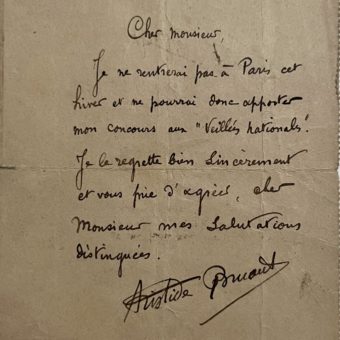 Cher monsieur,
Je ne rentrerai pas à Paris cet
hiver et ne pourrai donc apporter
mon concours aux "Veillées nationals".
Je le regrette bien sincèrement
et vous prie d'agréer, cher
Monsieur mes salutations
distinguées.
Aristide Bruant